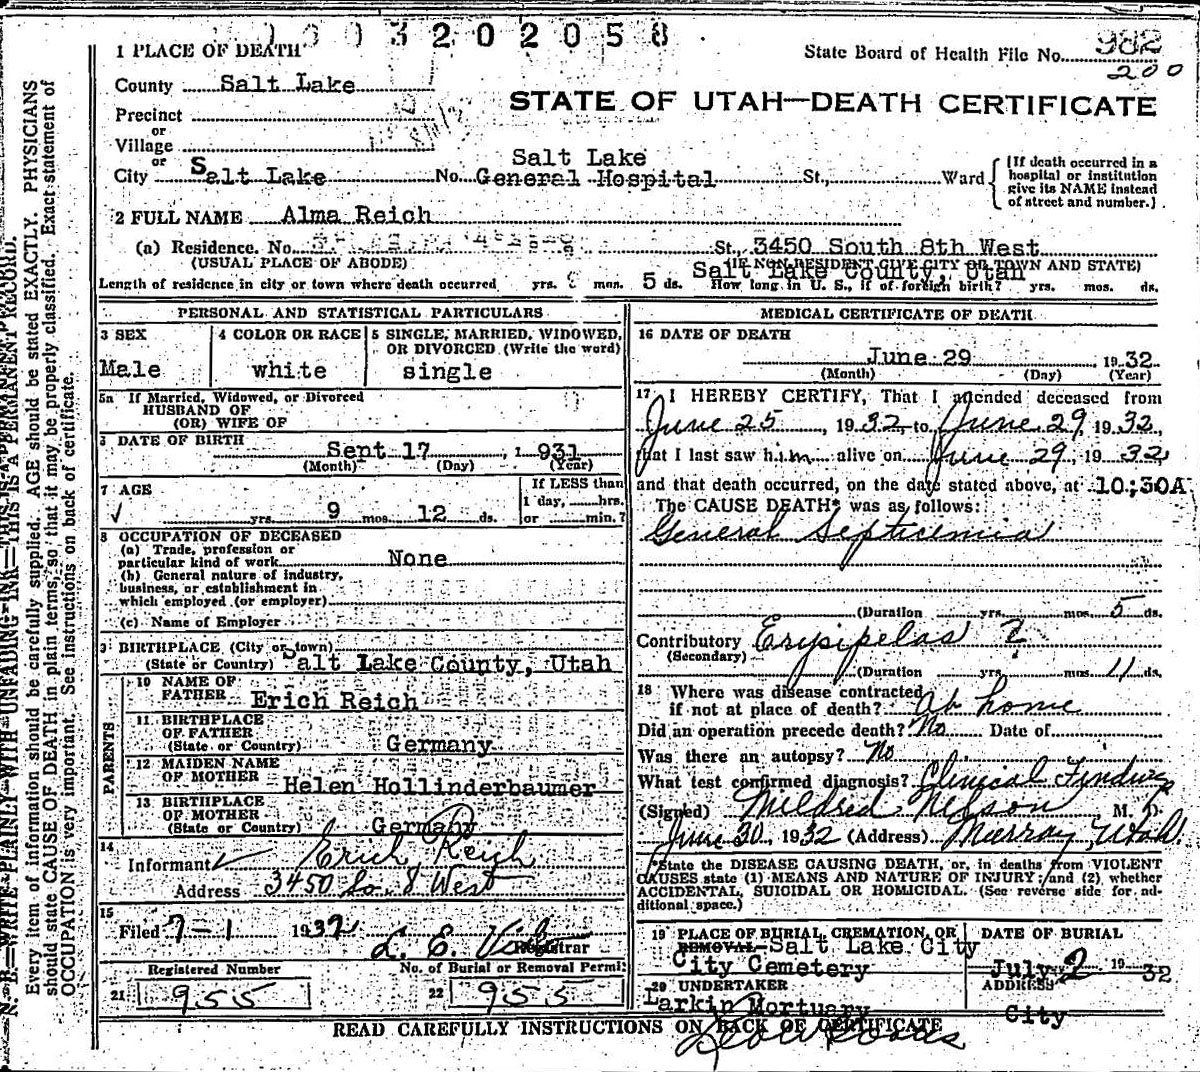 3202058
1 PLACE OF DEATH
State Board of Health File No. 982
200
County Salt Lake
STATE OF UTAH—DEATH CERTIFICATE
Precinct
or
Village
or
City Salt Lake No. Salt Lake General Hospital St., Ward
(If death occurred in a hospital or institution give its NAME instead of street and number.)
2 FULL NAME Alma Reich
(a) Residence. No. St., 3450 South 8th West
(USUAL PLACE OF ABODE) (IF NON-RESIDENT GIVE CITY OR TOWN AND STATE)
Salt Lake County, Utah
Length of residence in city or town where death occurred yrs. mos. 5 ds. How long in U. S., if of foreign birth? yrs. mos. ds.
PERSONAL AND STATISTICAL PARTICULARS
3 SEX
Male
4 COLOR OR RACE
white
5 SINGLE, MARRIED, WIDOWED,
OR DIVORCED (Write the word)
single
5a If Married, Widowed, or Divorced
HUSBAND OF
(OR) WIFE OF
DATE OF BIRTH
Sept 17, 1931
(Month) (Day) (Year)
7 AGE
yrs. 9 mos. 12 ds.
If LESS than
1 day, hrs.
or min.?
8 OCCUPATION OF DECEASED
(a) Trade, profession or
particular kind of work None
(b) General nature of industry,
business, or establishment in
which employed (or employer)
(c) Name of Employer
9 BIRTHPLACE (City or town)
(State or Country) Salt Lake County, Utah
PARENTS
10 NAME OF
FATHER Erich Reich
11 BIRTHPLACE
OF FATHER
(State or Country) Germany
12 MAIDEN NAME
OF MOTHER Helen Hollinderbaumer
13 BIRTHPLACE
OF MOTHER
(State or Country) Germany
14
Informant Erich Reich
Address 3450 So. 8 West
15
Filed 7-1 1932
L. E.
Registrar
Registered Number
21 955
No. of Burial or Removal Permit
22 955
MEDICAL CERTIFICATE OF DEATH
16 DATE OF DEATH
June 29 1932
(Month) (Day) (Year)
17 I HEREBY CERTIFY, That I attended deceased from
June 25, 1932, to June 29, 1932,
that I last saw him alive on June 29, 1932
and that death occurred, on the date stated above, at 10;30A
The CAUSE DEATH* was as follows:
General Septicemia
(Duration yrs. mos. 5 ds.
Contributory Erysipelas ?
(Secondary)
(Duration yrs. mos. 11 ds.
18 Where was disease contracted
if not at place of death? At home
Did an operation precede death? No Date of
Was there an autopsy? No
What test confirmed diagnosis? Clinical Findings
(Signed) Mildred Nelson M. D.
June 30, 1932 (Address) Murray, Utah.
*State the DISEASE CAUSING DEATH, or, in deaths from VIOLENT
CAUSES state (1) MEANS AND NATURE OF INJURY; and (2) whether
ACCIDENTAL, SUICIDAL OR HOMICIDAL. (See reverse side for ad-
ditional space.)
19 PLACE OF BURIAL, CREMATION, OR
REMOVAL Salt Lake City
City Cemetery
DATE OF BURIAL
July 2 1932
20 UNDERTAKER
Larkin Mortuary
ADDRESS
City
READ CAREFULLY INSTRUCTIONS ON BACK OF CERTIFICATE
N. B.—WRITE PLAINLY WITH UNFADING INK—THIS IS A PERMANENT RECORD.
Every item of information should be carefully supplied. AGE should be stated EXACTLY. PHYSICIANS
should state CAUSE OF DEATH in plain terms, so that it may be properly classified. Exact statement of
OCCUPATION is very important. See instructions on back of certificate.